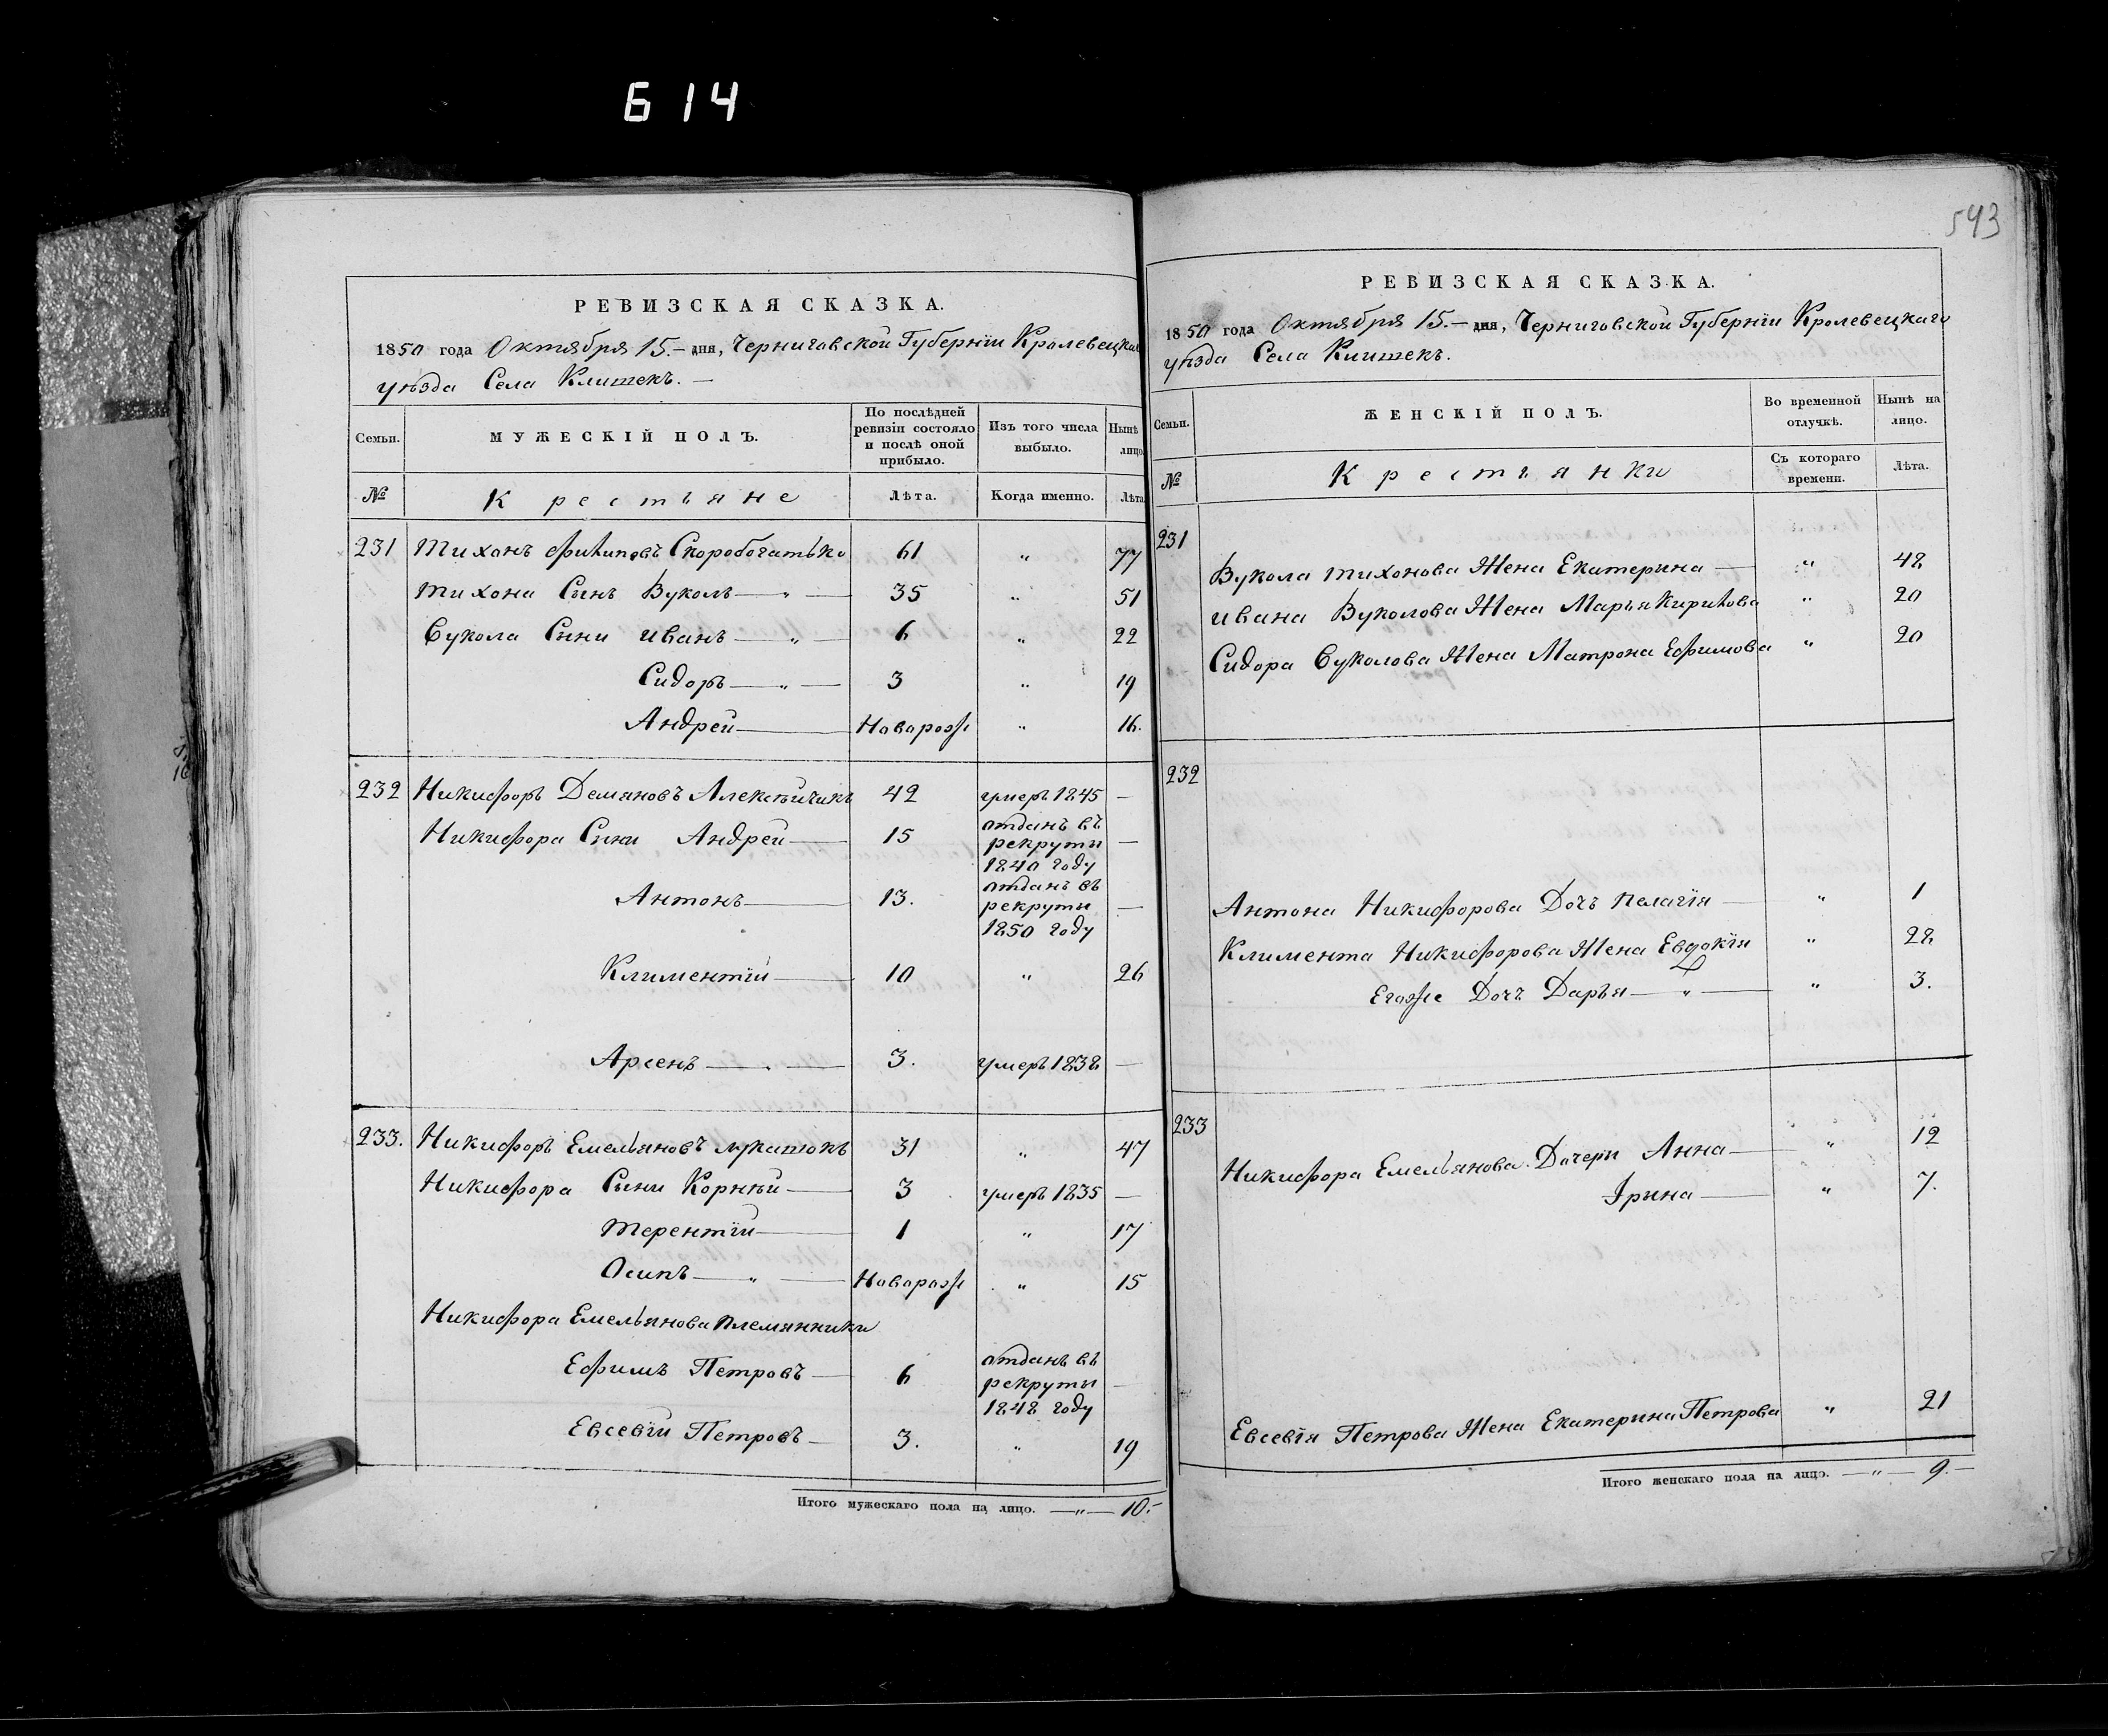 614
РЕВИЗСКАЯ СКАЗКА.
1850 года Октября 15.– дня, Черниговской Губернїи Кролевецкаго
уѣзда Села Клишекъ. –
Семьи.
МУЖЕСКІЙ ПОЛЪ.
По послѣдней ревизіи состояло и послѣ оной прибыло.
Изъ того числа выбыло.
Нынѣ лицо
№
Крестьяне
Лѣта.
Когда именно.
Лѣта
231 Тихонъ Филиповъ Скоробогатько 61 " 77
Тихона Сынъ Вуколъ — " — 35 " 51
Вукола Сыни Иванъ — " — 6 " 22
Сидоръ — " — 3 " 19
Андрей — Новорож " 16.
232 Никифоръ Демяновъ Алексѣйчикъ 42 умеръ 1845 —
Никифора Сыни Андрей — 15 отданъ въ рекруты 1840 году —
Антонъ — 13. отданъ въ рекруты 1850 году —
Климентїй — 10 " 26
Арсенъ — . — 3. умеръ 1838 —
233. Никифоръ Емельяновъ Лукашокъ 31 " 47
Никифора Сыни Корнѣй — 3 умеръ 1835 —
Терентїй — 1 " 17
Осипъ — " — Новорож " 15
Никифора Емельянова племянники
Ефимъ Петровъ — 6 отданъ въ рекруты 1848 году —
Евсевїй Петровъ — 3. " 19
Итого мужескаго пола на лицо. —"— 10.–
543
РЕВИЗСКАЯ СКАЗКА.
1850 года Октября 15.– дня, Черниговской Губернїи Кролевецкаго
уѣзда Села Клишекъ.
Семьи.
ЖЕНСКІЙ ПОЛЪ.
Во временной отлучкѣ.
Нынѣ на лицо.
№
Крестьянки
Съ котораго времени.
Лѣта.
231
Вукола Тихонова Жена Екатерина — " 48
Ивана Вуколова Жена Марья Кирилова " 20
Сидора Вуколова Жена Матрона Ефимова " 20
232
Антона Никифорова Дочь Пелагїя — " 1
Климента Никифорова Жена Евдокїя " 28
Егоже Дочь Дарья — " — " 3.
233
Никифора Емельянова Дочери Анна — " 12
Ірина — " 7.
Евсевїя Петрова Жена Екатерина Петрова " 21
Итого женскаго пола на лицо. —"— 9.–